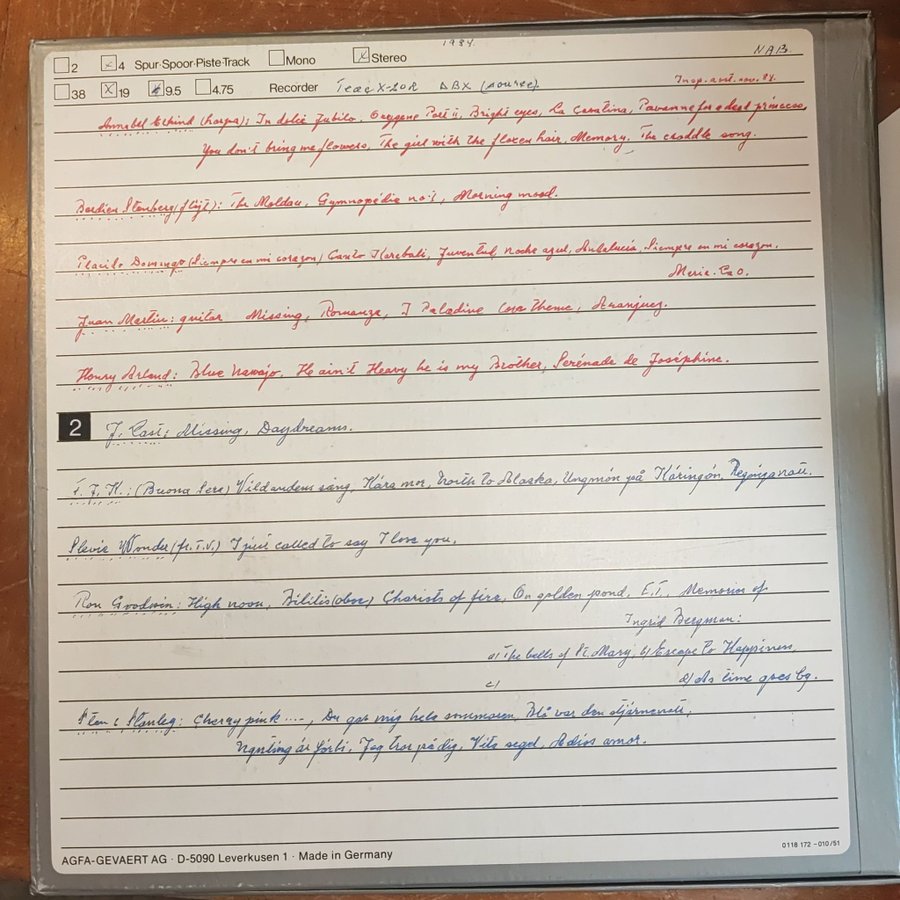 1984.
2 4 Spur·Spoor·Piste·Track Mono Stereo NAB
38 19 9.5 4.75 Recorder Teac X-20R DBX (source). Insp. avst. nov. 84.
(harpa): In dolci Jubilo, Oxygene Part II, Bright eyes, La Cavatina, Pavanne for a dead princess,
You don't bring me flowers, The girl with the flaxen hair, Memory, The craddle song.
Stenberg (flöjt): The Moldau, Gymnopédie no:1, Morning mood.
Placido Domingo (Siempre en mi corazon) Canto Karabali, Juventud, Noche azul, Andalucia, Siempre en mi corazon,
Maria-La O.
Juan Martin: guitar Missing, Romanza, I Paladine Cosa theme, Aranjuez.
Henry Arland: Blue Navajo, He ain't Heavy he is my Brother, Serénade de Joséphine.
2 J. Last: Missing, Daydreams.
(Buona Sera) Vildandens sång, Kära mor, North to Alaska, Ungmön på Käringön, Regniga natt.
Stevie Wonder (fr. T.V.) I just called to say I love you.
Ron Goodwin: High noon, Bilitis (oboe) Chariots of fire, On golden pond, E.T., Memories of
Ingrid Bergman:
a) The bells of St. Mary, b) Escape to Happiness,
c) d) As time goes by.
Sten & Stanley: Cherry pink ...., Du gav mig hela sommaren, Blå var den stjärnenatt,
är förbi, Jag tror på dig, Vita segel, Adios amor.
AGFA-GEVAERT AG · D-5090 Leverkusen 1 · Made in Germany
0118 172 - 010/51